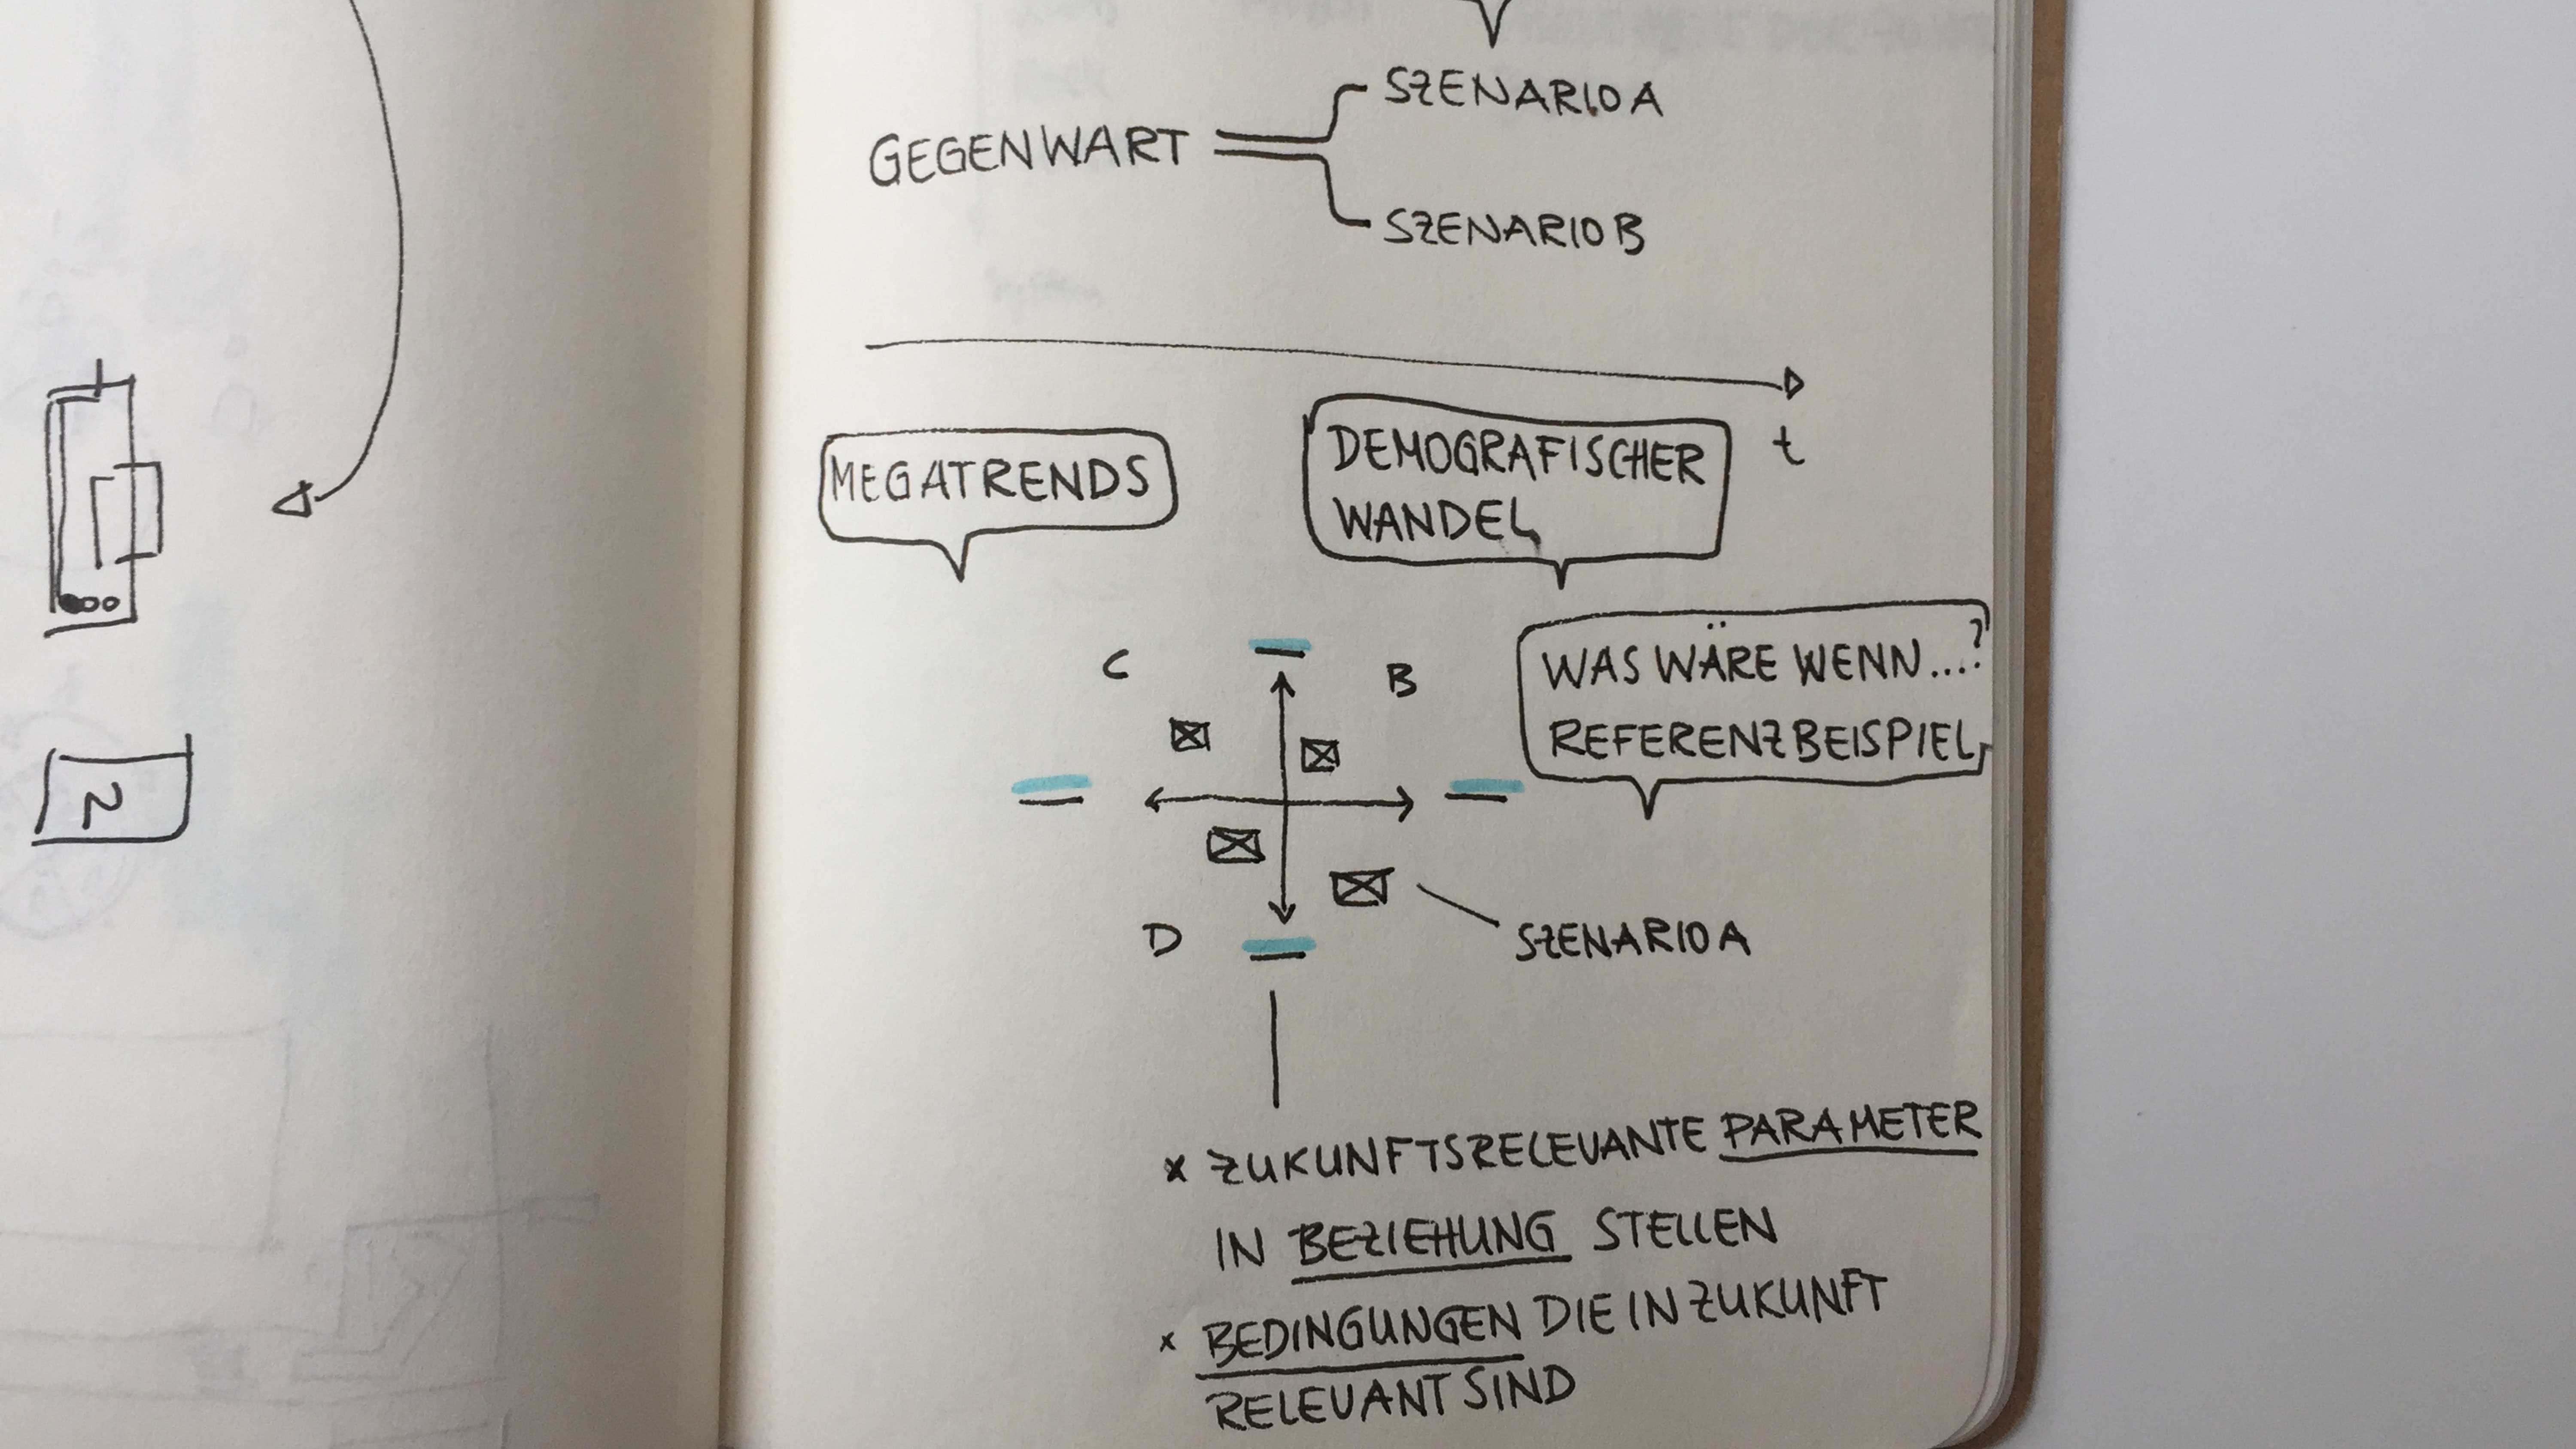 SZENARIO A
GEGENWART
SZENARIO B
t
MEGATRENDS
DEMOGRAFISCHER
WANDEL
WAS WÄRE WENN...?
REFERENZBEISPIEL
C
B
D
SZENARIO A
2
x ZUKUNFTSRELEVANTE PARAMETER
IN BEZIEHUNG STELLEN
x BEDINGUNGEN DIE IN ZUKUNFT
RELEVANT SIND